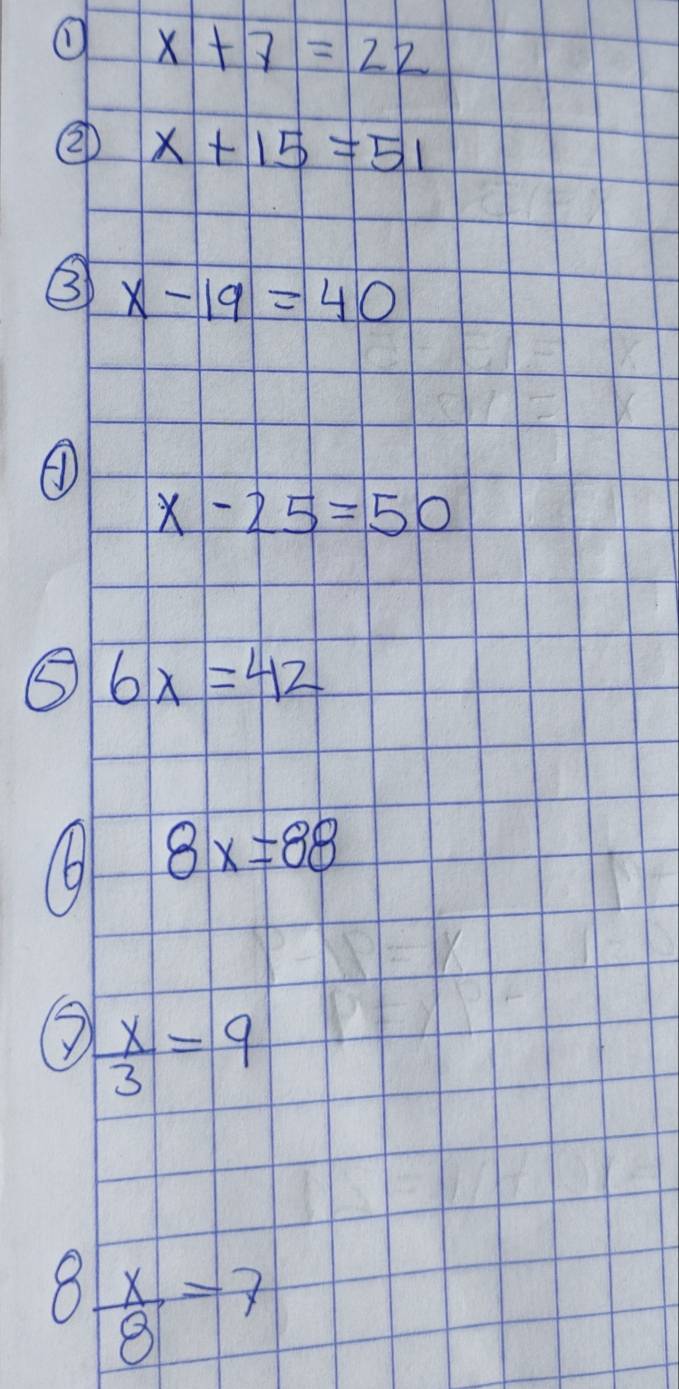 ① x + 7 = 22
② x + 15 = 51
③ x - 19 = 40
④ x - 25 = 50
⑤ 6x = 42
⑥ 8x = 88
⑦ x/3 = 9
8 x/8 = 7